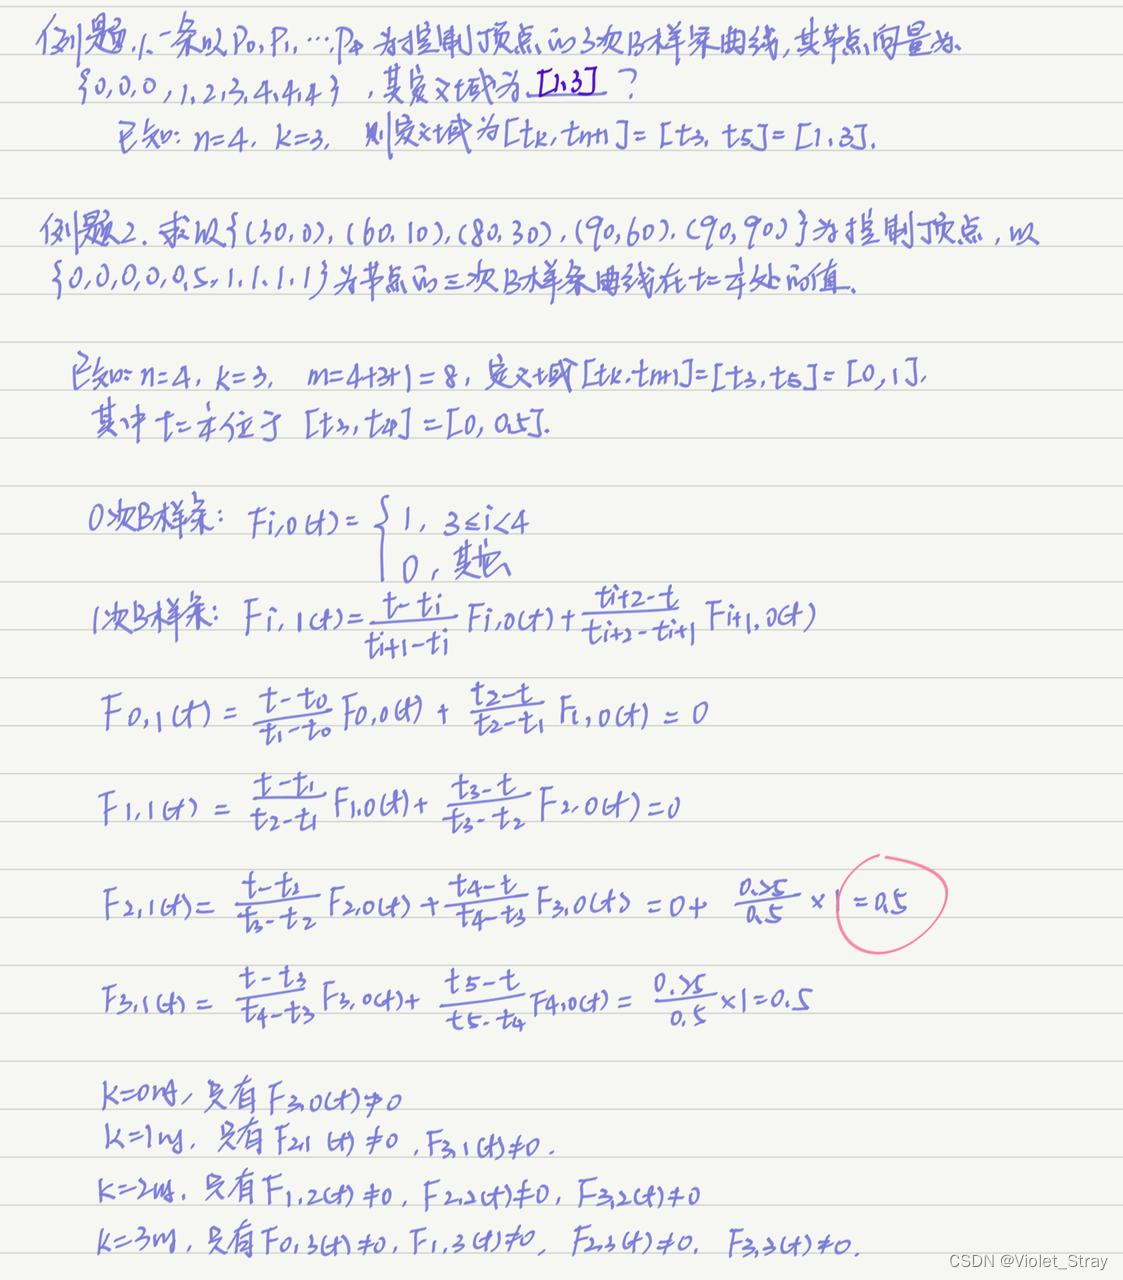 例题1.一条以P0,P1,…P4为控制顶点的3次B样条曲线,其节点向量为
{0,0,0,1,2,3,4,4,4},其定义域为[1,3]?
已知:n=4,k=3,则定义域为[tk,tn+1]=[t3,t5]=[1,3].
例题2.求以{(30,0),(60,10),(80,30),(90,60),(90,90)}为控制顶点,以
{0,0,0,0,0.5,1,1,1,1}为节点的三次B样条曲线在t=¼处的值.
已知:n=4,k=3, m=4+3+1=8,定义域[tk,tn+1]=[t3,t5]=[0,1],
其中t=¼位于[t3,t4]=[0,0.5].
0次B样条: Fi,0(t)={1, 3≤i<4
0,其它
1次B样条: Fi,1(t)=(t-ti)/(ti+1-ti) Fi,0(t)+(ti+2-t)/(ti+2-ti+1) Fi+1,0(t)
F0,1(t)=(t-t0)/(t1-t0) F0,0(t)+(t2-t)/(t2-t1) F1,0(t)=0
F1,1(t)=(t-t1)/(t2-t1) F1,0(t)+(t3-t)/(t3-t2) F2,0(t)=0
F2,1(t)=(t-t2)/(t3-t2) F2,0(t)+(t4-t)/(t4-t3) F3,0(t)=0+0.25/0.5×1=0.5
F3,1(t)=(t-t3)/(t4-t3) F3,0(t)+(t5-t)/(t5-t4) F4,0(t)=0.25/0.5×1=0.5
k=0时,只有F3,0(t)≠0
k=1时,只有F2,1(t)≠0,F3,1(t)≠0.
k=2时,只有F1,2(t)≠0,F2,2(t)≠0,F3,2(t)≠0
k=3时,只有F0,3(t)≠0,F1,3(t)≠0,F2,3(t)≠0,F3,3(t)≠0.
CSDN @Violet_Stray